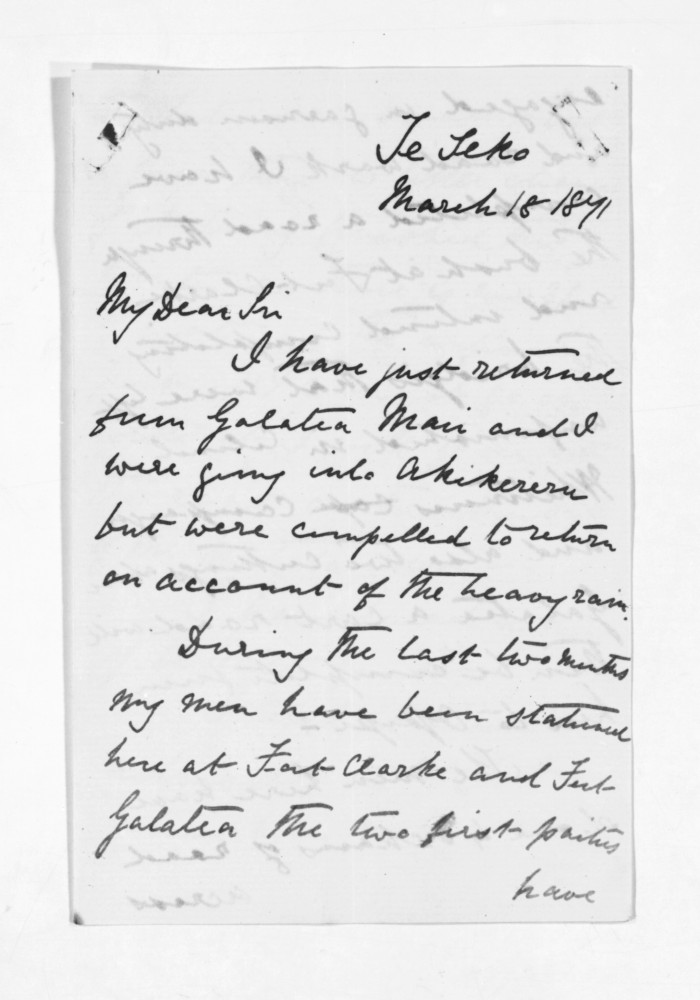 Te Teko
March 18 1871
My Dear Sir
I have just returned
from Galatea Mair and I
were going into Ahikereru
but were compelled to return
on account of the heavy rain.
During the last two months
my men have been stationed
here at Fort Clarke and Fort
Galatea the two first parties
have